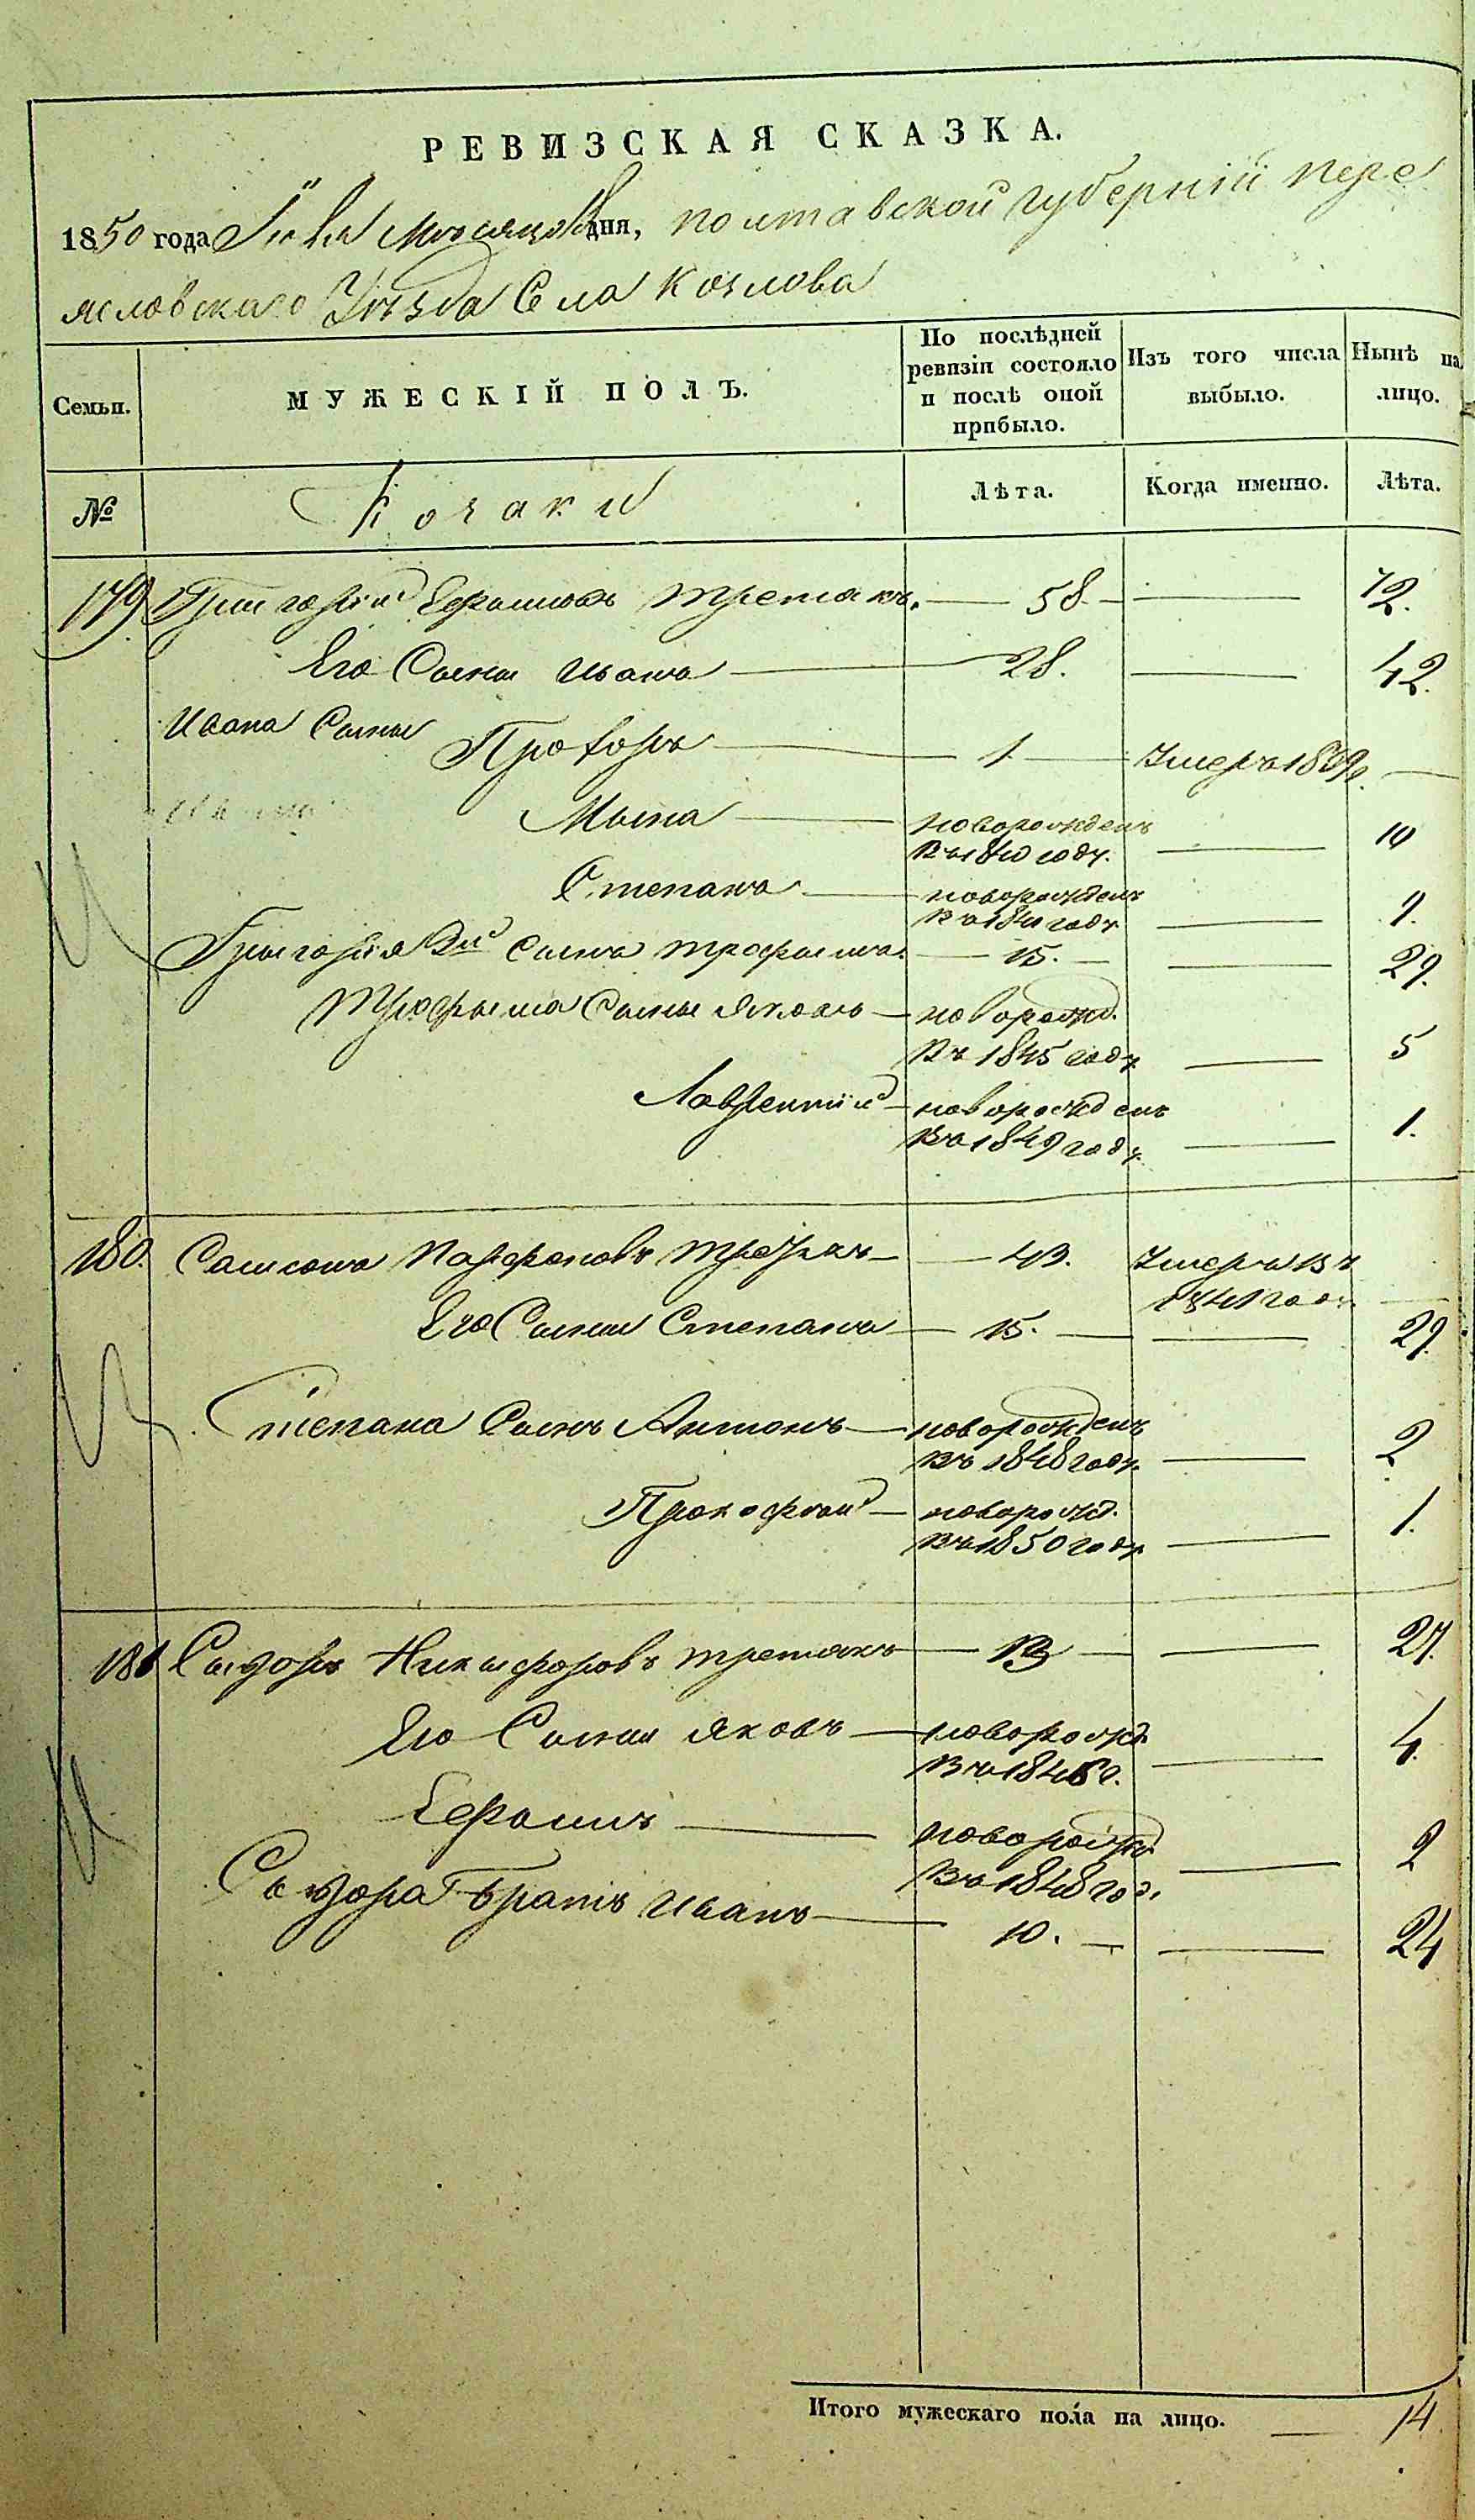 РЕВИЗСКАЯ СКАЗКА.
1850 года Юня Мѣсяца дня, полтавской губерніи пере
яславскаго Уѣзда Села Козлова
Семьи.
МУЖЕСКІЙ ПОЛЪ.
По послѣдней ревизіи состояло и послѣ оной прибыло.
Изъ того числа выбыло.
Нынѣ на лицо.
№
Козаки
Лѣта.
Когда именно.
Лѣта.
179 Григорій Ефимовъ третякъ. 58. 72.
Его Сыны Иванъ 28. 42.
Ивана Сыны Прохоръ 1 Умеръ 1839г.
Мына новорожденъ 10
Въ 1840 году.
Степанъ новорожденъ 9.
Въ 1841 году
Григорія 2й Сынъ трофымъ. 15. 29.
Трофыма Сыны Яковъ новорожд.
Въ 1845 году 5
Лаврентій новорожденъ 1.
Въ 1849 году
180. Самсонъ Парфеновъ третякъ 43. Умеръ въ
1841 году
Его Сыны Степанъ 15. 29.
Степана Сынъ Антонъ новорожденъ 2
Въ 1848 году
Прокофій новорожд. 1.
Въ 1850 году
181 Сыдоръ Никыфоровъ третякъ 13 27.
Его Сыны Яковъ новорожд. 4.
Въ 1846г.
Ефымъ новорожд. 2
Въ 1848 год.
Сыдора Братъ Иванъ 10. 24
Итого мужескаго пола на лицо. 14